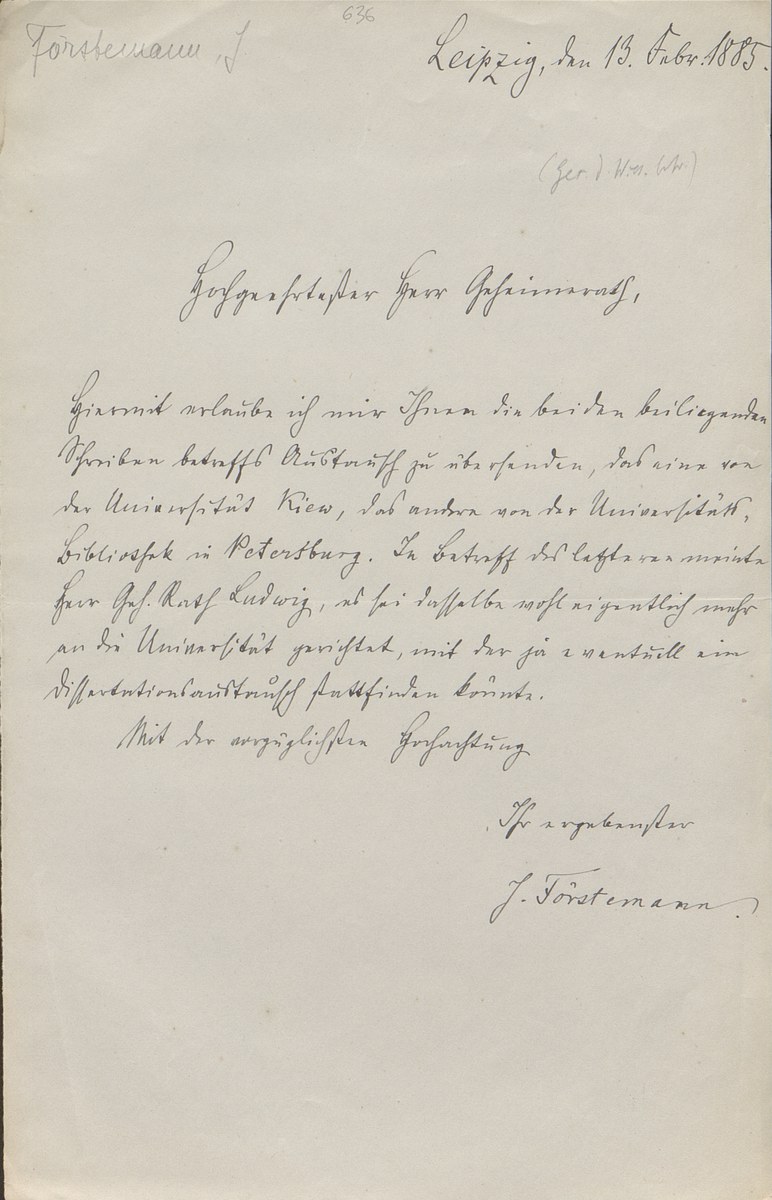 636
Förstemann, J
Leipzig, den 13. Febr. 1885.
(Ges. d. Wiss. betr.)
Hochgeehrtester Herr Geheimerath,
Hiermit erlaube ich mir Ihnen die beiden beiliegenden
Schreiben betreffs Austausch zu übersenden, das eine von
der Universität Kiew, das andere von der Universitäts-
Bibliothek in Petersburg. In Betreff des letzteren meinte
Herr Geh. Rath Ludwig, es sei dasselbe wohl eigentlich mehr
an die Universität gerichtet, mit der ja eventuell ein
Dissertationsaustausch stattfinden könnte.
Mit der vorzüglichsten Hochachtung
Ihr ergebenster
J. Förstemann.